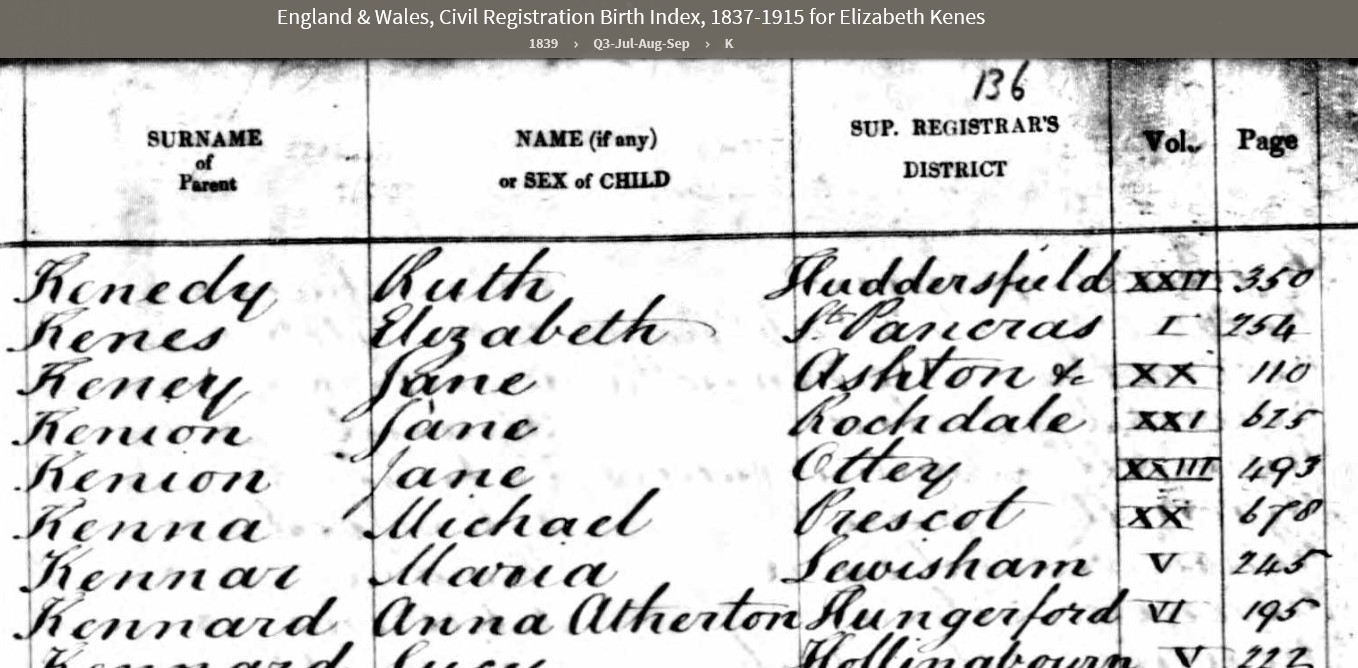 England & Wales, Civil Registration Birth Index, 1837-1915 for Elizabeth Kenes
1839 › Q3-Jul-Aug-Sep › K
136
SURNAME of Parent NAME (if any) or SEX of CHILD SUP. REGISTRAR'S DISTRICT Vol. Page
Kenedy Ruth Huddersfield XXII 350
Kenes Elizabeth St Pancras I 254
Keney Jane Ashton &c XX 110
Kenion Jane Rochdale XXI 625
Kenion Jane Ottey XXIII 493
Kenna Michael Prescot XX 678
Kennar Maria Lewisham V 245
Kennard Anna Atherton Hungerford VI 195
Kennard Lucy Hollingbourn V 222